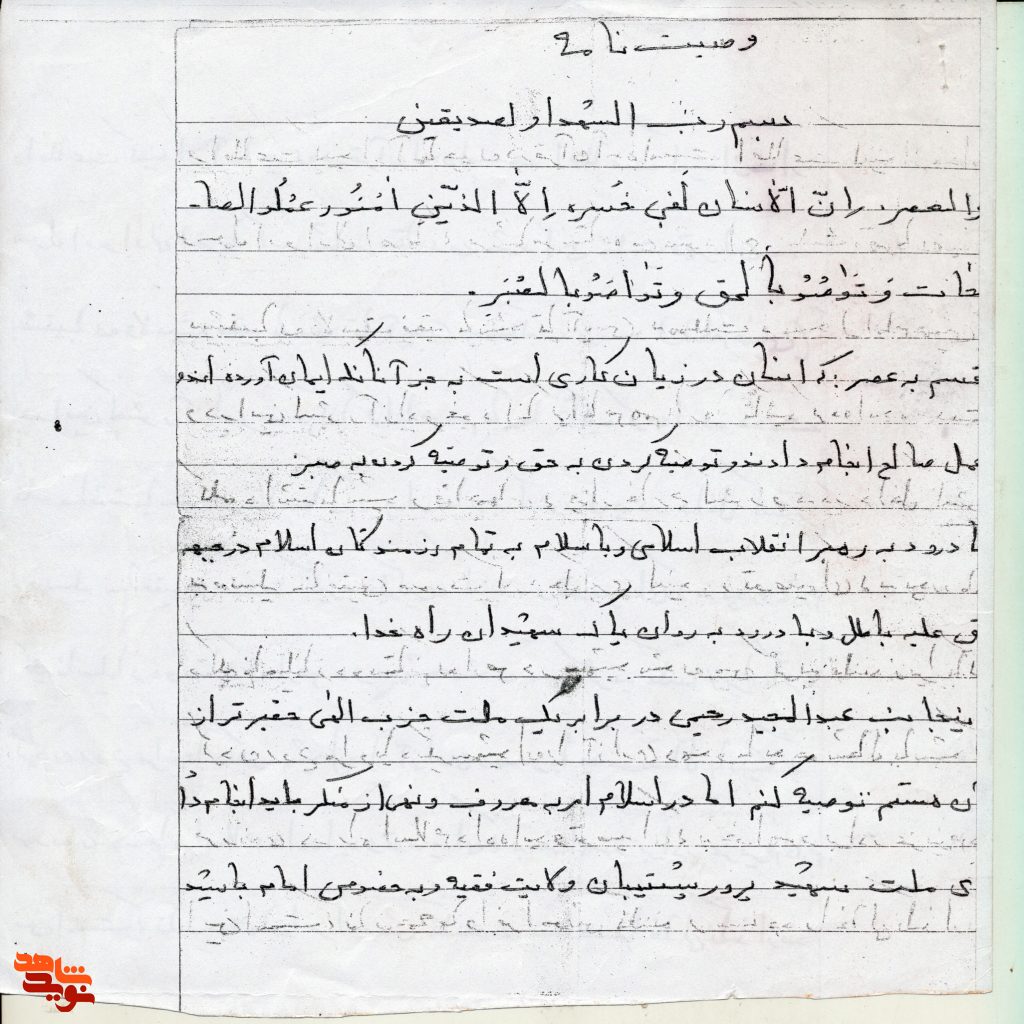 وصیت نامه
بسم رب الشهدا و لصدیقین
والعصر. اِنَّ الّاانسان لَفی خُسرِ اِلَّا الذیّنِ امَنُو و عَمِلُو الصا-
لحات وَ تَوٰاصُوْ بالحق وَ تَوٰاصَوْ با الصَبَر.
قسم به عصر که انسان در زیان کاری است به جز آنانکه ایمان آورده اند و
عمل صالح انجام دادند و توصیه کردن به حق و توصیّه کردن به صبر
با درود به رهبر انقلاب اسلامی و با سلام به تمام رزمندگان اسلام در جبهه
حق علیه باطل و با درود به روان پاک شهیدان راه خدا.
اینجانب عبدالمجید رحیمی در برابر یک ملت حزب الهی حقیرتر از
آن هستم توصیه کنم اما در اسلام امر به معروف و نهی از منکر باید انجام داد
ای ملت شهید پرور پشتیبان ولایت فقیه و به خصوص امام باشید
شاهد
نوید